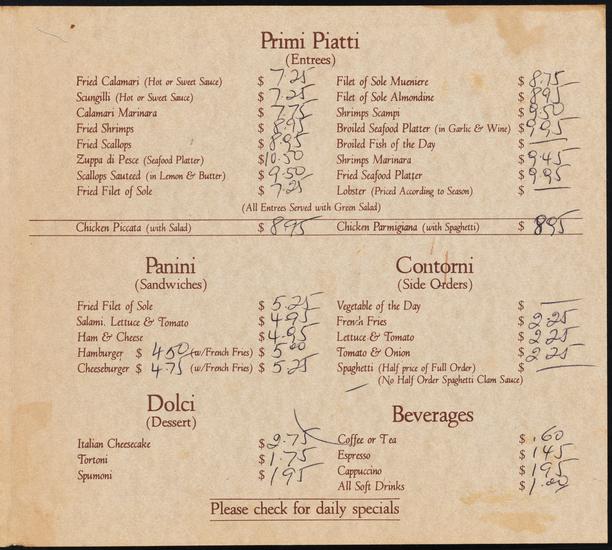 Primi Piatti
(Entrees)
Fried Calamari (Hot or Sweet Sauce) $ 7.25
Scungilli (Hot or Sweet Sauce) $ 7.25
Calamari Marinara $ 7.75
Fried Shrimps $ 8.95
Fried Scallops $ 8.95
Zuppa di Pesce (Seafood Platter) $10.50
Scallops Sauteed (in Lemon & Butter) $ 9.50
Fried Filet of Sole $ 7.25
Filet of Sole Mueniere $ 8.75
Filet of Sole Almondine $ 895
Shrimps Scampi $ 9.50
Broiled Seafood Platter (in Garlic & Wine) $ 9.95
Broiled Fish of the Day $
Shrimps Marinara $ 9.45
Fried Seafood Platter $ 995
Lobster (Priced According to Season) $
(All Entrees Served with Green Salad)
Chicken Piccata (with Salad) $ 895
Chicken Parmigiana (with Spaghetti) $ 895
Panini
(Sandwiches)
Fried Filet of Sole $ 5.25
Salami, Lettuce & Tomato $ 4.95
Ham & Cheese $ 4.95
Hamburger $ 4.50 (w/French Fries) $ 5.00
Cheeseburger $ 4.75 (w/French Fries) $ 5.25
Contorni
(Side Orders)
Vegetable of the Day $
French Fries $ 2.25
Lettuce & Tomato $ 2.25
Tomato & Onion $ 2.25
Spaghetti (Half price of Full Order) $
(No Half Order Spaghetti Clam Sauce)
Dolci
(Dessert)
Italian Cheesecake $ 2.75
Tortoni $ 1.75
Spumoni $ 195
Beverages
Coffee or Tea $ .60
Espresso $ 145
Cappuccino $ 195
All Soft Drinks $ 1.00
Please check for daily specials